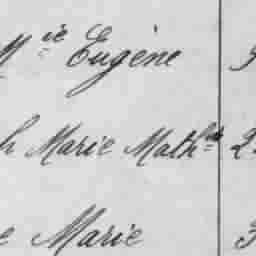 Mie Eugène
h Marie Mathde 2
e Marie 3